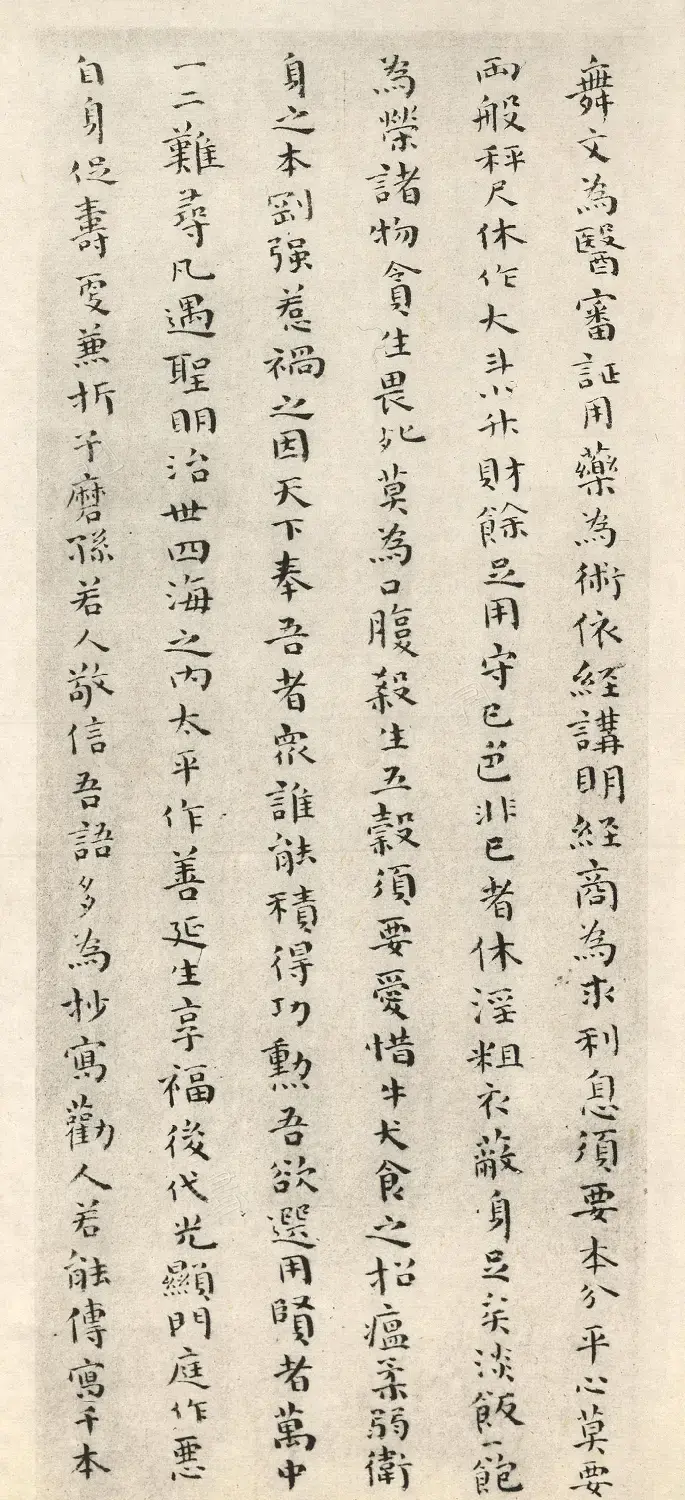 舞文為醫審証用藥為術依經講明經商為求利息須要本分平心莫要
両般秤尺休作大斗小升財餘足用守己色非己者休淫粗衣蔽身足矣淡飯一飽
為榮諸物貪生畏死莫為口腹殺生五穀須要愛惜牛犬食之招瘟柔弱衛
身之本剛强惹禍之因天下奉吾者衆誰能積得功勲吾欲選用賢者萬中
一二難尋凡遇聖明治世四海之内太平作善延生享福後代光顯門庭作悪
自身促壽更兼折子磨孫若人敬信吾語多為抄寫勸人若能傳寫千本